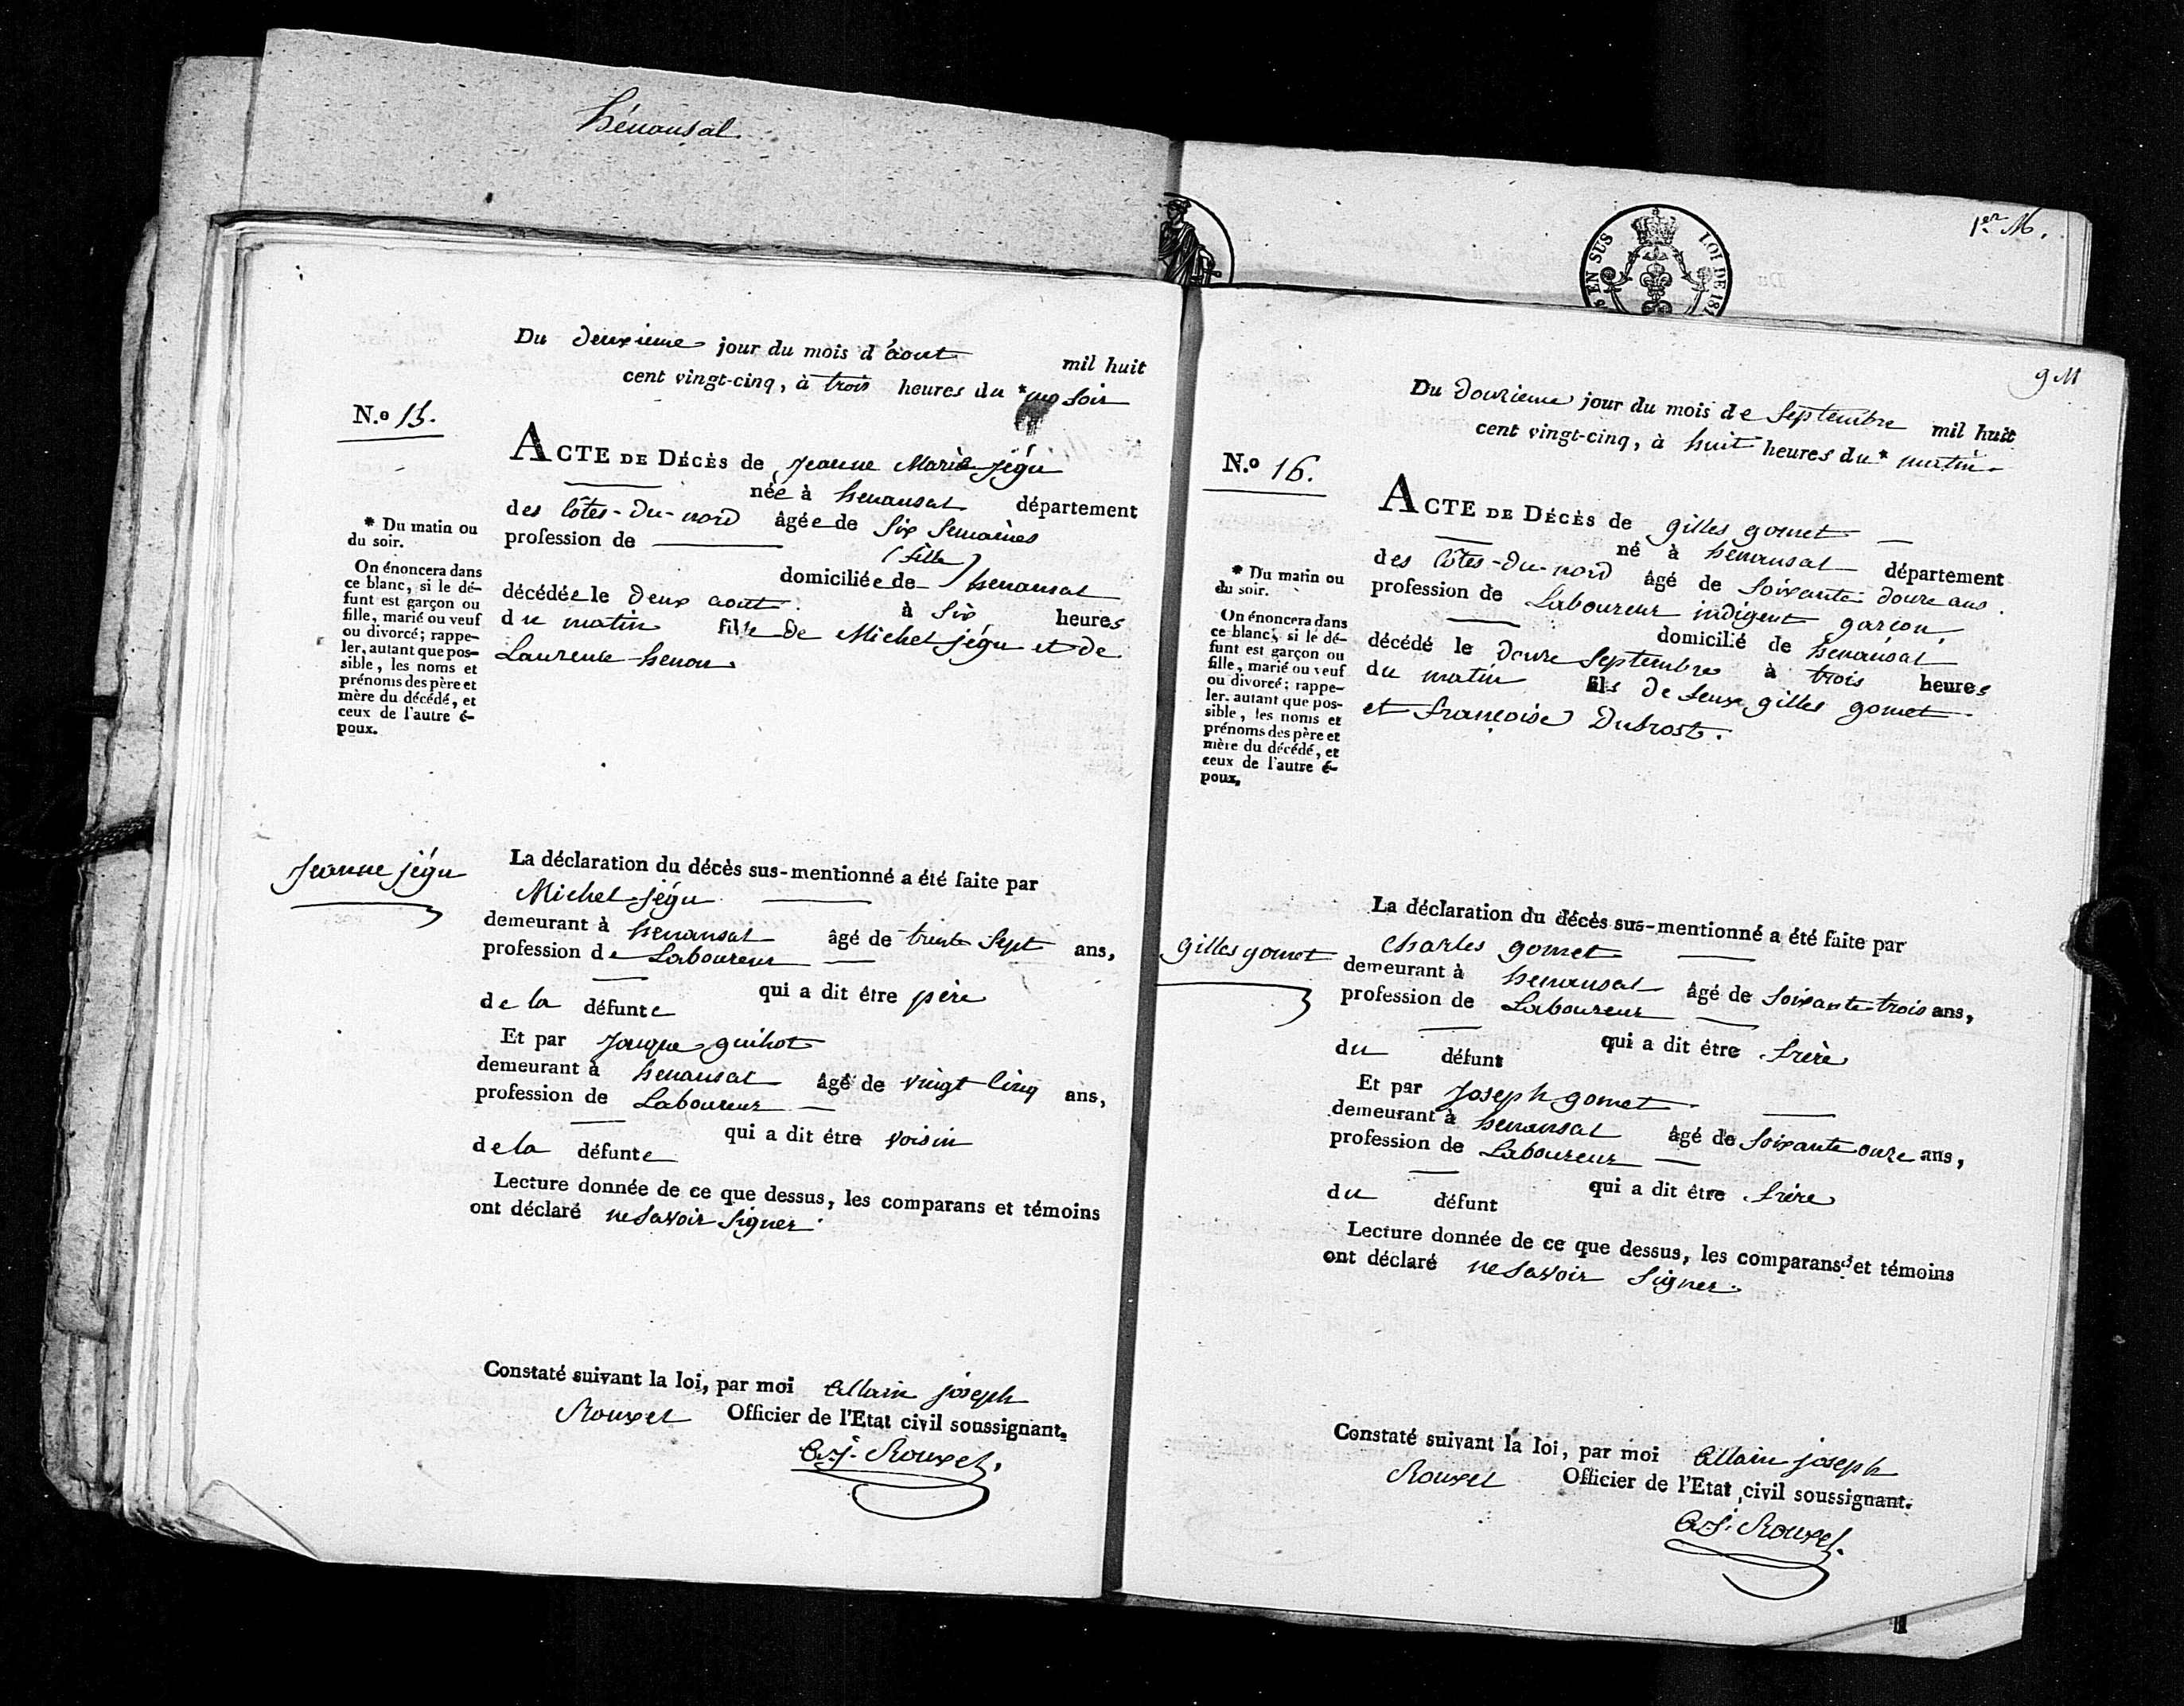 hénansal
1er M.
EN SUS LOI DE 18
Du deuxieme jour du mois d'aout mil huit
cent vingt-cinq, à trois heures du * soir
N.o 15.
ACTE DE DÉCÈS de Jeanne Marie jégu
née à henansal département
des Côtes-du-nord âgée de Six Semaines
profession de (fille)
domiciliée de henansal
décédée le deux aout à Six heures
du matin fille de Michel jégu et de
Laurence henon
* Du matin ou
du soir.
On énoncera dans
ce blanc, si le dé-
funt est garçon ou
fille, marié ou veuf
ou divorcé; rappe-
ler, autant que pos-
sible, les noms et
prénoms des père et
mère du décédé, et
ceux de l'autre é-
poux.
Jeanne jégu
La déclaration du décès sus-mentionné a été faite par
Michel jégu
demeurant à henansal âgé de trente Sept ans,
profession de Laboureur
qui a dit être père
de la défunte
Et par Jacque guihot
demeurant à henansal âgé de vingt Cinq ans,
profession de Laboureur
qui a dit être voisin
de la défunte
Lecture donnée de ce que dessus, les comparans et témoins
ont déclaré ne Savoir Signer.
Constaté suivant la loi, par moi Allain joseph
Rouxel Officier de l'Etat civil soussignant.
A.j. Rouxel.
9 M
Du douzieme jour du mois de Septembre mil huit
cent vingt-cinq, à huit heures du * matin
N.o 16.
ACTE DE DÉCÈS de gilles gomet
né à henansal département
des Côtes-du-nord âgé de Soixante douze ans.
profession de Laboureur indigent garcon,
domicilié de henansal
décédé le douze Septembre à trois heures
du matin fils de feux gilles gomet
et françoise Dubrost.
* Du matin ou
du soir.
On énoncera dans
ce blanc, si le dé-
funt est garçon ou
fille, marié ou veuf
ou divorcé; rappe-
ler, autant que pos-
sible, les noms et
prénoms des père et
mère du décédé, et
ceux de l'autre é-
poux.
gilles gomet
La déclaration du décès sus-mentionné a été faite par
Charles gomet
demeurant à henansal âgé de Soixante trois ans,
profession de Laboureur
qui a dit être frère
du défunt
Et par Joseph gomet
demeurant à henansal âgé de Soixante onze ans,
profession de Laboureur
qui a dit être frère
du défunt
Lecture donnée de ce que dessus, les comparans et témoins
ont déclaré ne Savoir Signer.
Constaté suivant la loi, par moi Allain joseph
Rouxel Officier de l'Etat civil soussignant.
A.j. Rouxel.